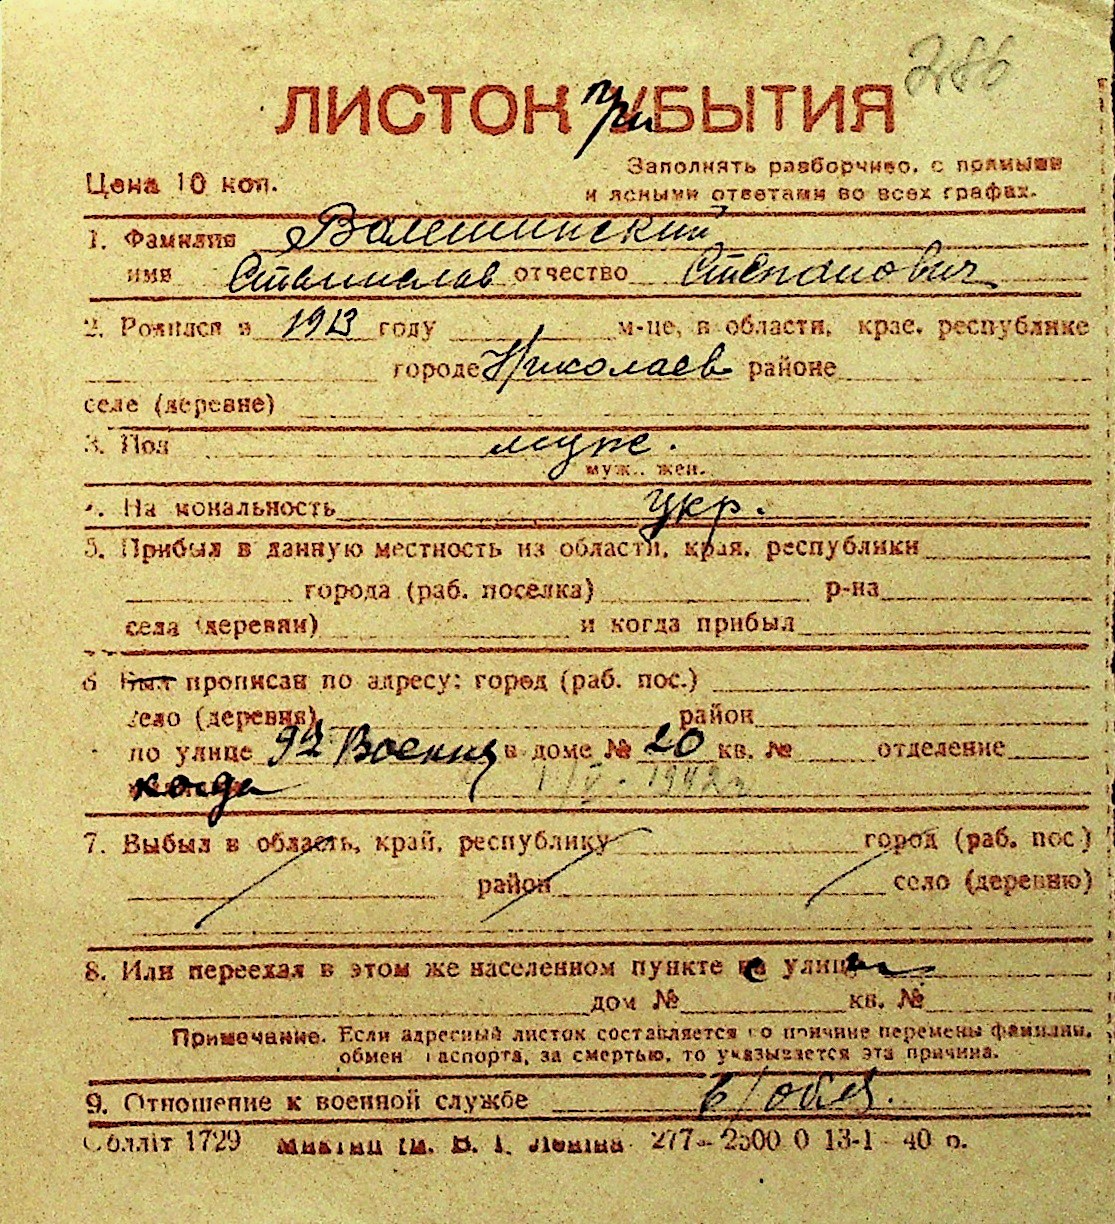 286
ЛИСТОК ПриБЫТИЯ
Заполнять разборчиво, с прямыми
Цена 10 коп.
и ясными ответами во всех графах.
1. Фамилия Валешинский
имя Станислав отчество Степанович
2. Родился в 1913 году м-це, в области, крае, республике
городе Николаев районе
селе (деревне)
3. Пол муж.
муж., жен.
4. На иональность укр.
5. Прибыл в данную местность из области, края, республики
города (раб. поселка) р-на
села (деревни) и когда прибыл
6 Был прописан по адресу: город (раб. пос.)
село (деревня) район
по улице 9я Военная в доме № 20 кв. № отделение
когда 1/V-1942г
7. Выбыл в область, край, республику город (раб. пос.)
район село (деревню)
8. Или переехал в этом же населенном пункте с улицы
дом № кв. №
Примечание. Если адресный листок составляется по причине перемены фамилии,
обмен паспорта, за смертью, то указывается эта причина.
9. Отношение к военной службе в/обяз.
Облліт 1729 Леніна 277-2500 0 13-1 40 п.